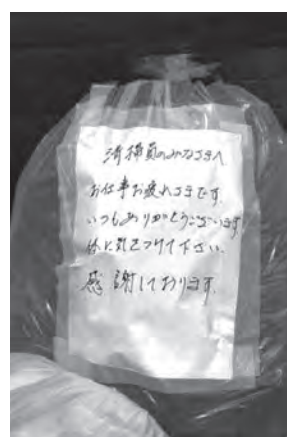 清掃員のみなさまへ
お仕事お疲れさまです。
いつもありがとうございます
体に気をつけて下さい.
感謝しております.